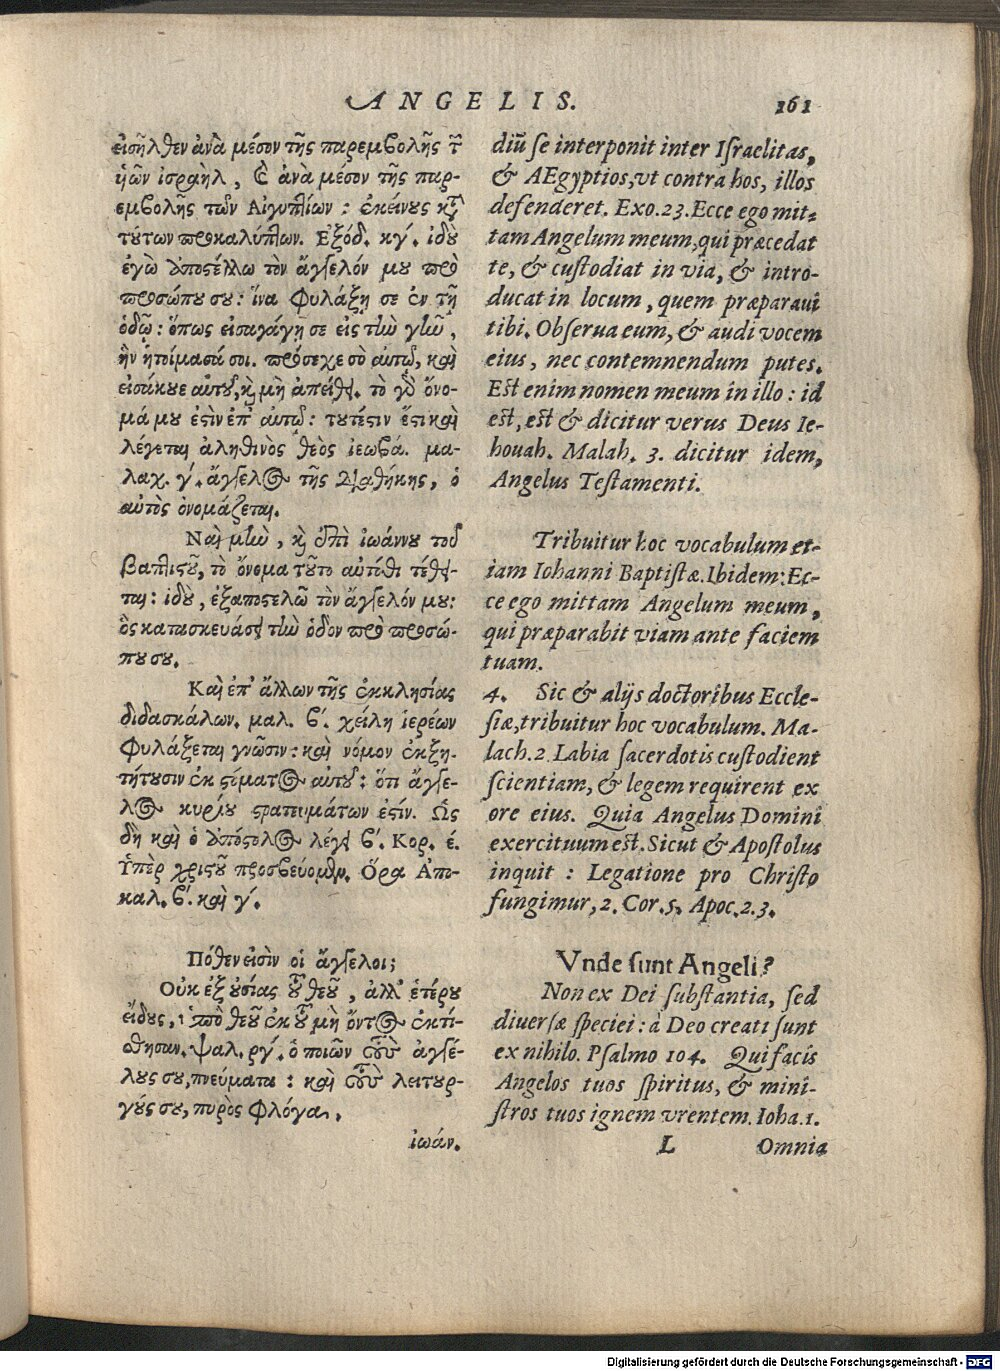 ANGELIS. 161
εἰσῆλθεν ἀνὰ μέσον τῆς παρεμβολῆς τ̃
ὑῶν ἰσραὴλ, & ἀνὰ μέσον τῆς παρ-
εμβολῆς τῶν Αἰγυπτίων : ἐκείνους κτ̃
τύτων προκαλύπτων. Ἐξόδ. κγ΄. ἰδοὺ
ἐγὼ ἀποστέλλω τὸν ἄγγελόν μου πρὸ
προσώπου σου: ἵνα φυλάξῃ σε ἐν τῇ
ὁδῷ: ὅπως εἰσαγάγῃ σε εἰς τὴν γῆν,
ἣν ἡτοίμασά σοι. πρόσεχε σὸ αὐτῷ, καὶ
εἰσάκουε αὐτοῦ, κὶ μὴ ἀπείθει. τὸ γδ ὄνο-
μά μου ἐστὶν ἐπ' αὐτῷ: τουτέστιν ἔστι καὶ
λέγεται ἀληθινὸς θεὸς ἰεωβά. μα-
λαχ. γ΄. ἄγγελος τῆς διαθήκης, ὁ
αὐτὸς ὀνομάζεται.
Ναὶ μὴν, κὶ ἐπὶ ἰωάννου τοῦ
βαπτιστοῦ, τὸ ὄνομα τοῦτο αὐτόθι τέθει-
ται: ἰδοὺ, ἐξαποστελῶ τὸν ἄγγελόν μου:
ὃς κατασκευάσει τὴν ὁδὸν πρὸ προσώ-
που σου.
Καὶ ἐπ' ἄλλων τῆς ἐκκλησίας
διδασκάλων. μαλ. β΄. χείλη ἱερέων
φυλάξεται γνῶσιν: καὶ νόμον ἐκζη-
τήτουσιν ἐκ στόματος αὐτοῦ: ὅτι ἄγγε-
λος κυρίου στρατευμάτων ἐστίν. Ὡς
δὴ καὶ ὁ ἀπόστολος λέγει β΄. Κορ. ε.
Ὑπὲρ χριστοῦ πρεσβεύομεν. Ὅρα Ἀπο-
καλ. β΄. καὶ γ΄.
Πόθεν εἰσὶν οἱ ἄγγελοι;
Οὐκ ἐξ οὐσίας τοῦ θεοῦ, ἀλλ' ἑτέρου
εἴδους, ὑπὸ θεοῦ ἐκ τοῦ μὴ ὄντος ἐκτί-
σθησαν. ψαλ. ργ΄. ὁ ποιῶν τοὺς ἀγγέ-
λους σου, πνεύματα : καὶ τοὺς λειτουρ-
γούς σου, πυρὸς φλόγα.
ἰωάν.
diū se interponit inter Israelitas,
& AEgyptios, vt contra hos, illos
defenderet. Exo.23. Ecce ego mit-
tam Angelum meum, qui præcedat
te, & custodiat in via, & intro-
ducat in locum, quem præparaui
tibi. Obserua eum, & audi vocem
eius, nec contemnendum putes.
Est enim nomen meum in illo : id
est, est & dicitur verus Deus Ie-
houah. Malah. 3. dicitur idem,
Angelus Testamenti.
Tribuitur hoc vocabulum et-
iam Iohanni Baptistæ. Ibidem: Ec-
ce ego mittam Angelum meum,
qui præparabit viam ante faciem
tuam.
4. Sic & alijs doctoribus Eccle-
siæ, tribuitur hoc vocabulum. Ma-
lach.2. Labia sacerdotis custodient
scientiam, & legem requirent ex
ore eius. Quia Angelus Domini
exercituum est. Sicut & Apostolus
inquit : Legatione pro Christo
fungimur, 2. Cor.5. Apoc.2.3.
Vnde sunt Angeli?
Non ex Dei substantia, sed
diuersæ speciei : à Deo creati sunt
ex nihilo. Psalmo 104. Qui facis
Angelos tuos spiritus, & mini-
stros tuos ignem vrentem. Ioha.1.
L Omnia
Digitalisierung gefördert durch die Deutsche Forschungsgemeinschaft - DFG